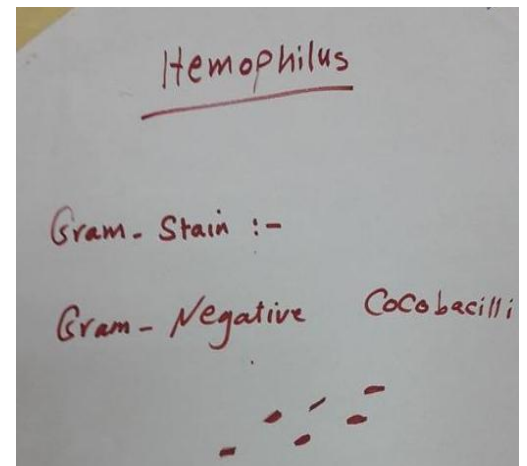 Hemophilus
Gram - Stain :-
Gram - Negative Cocobacilli